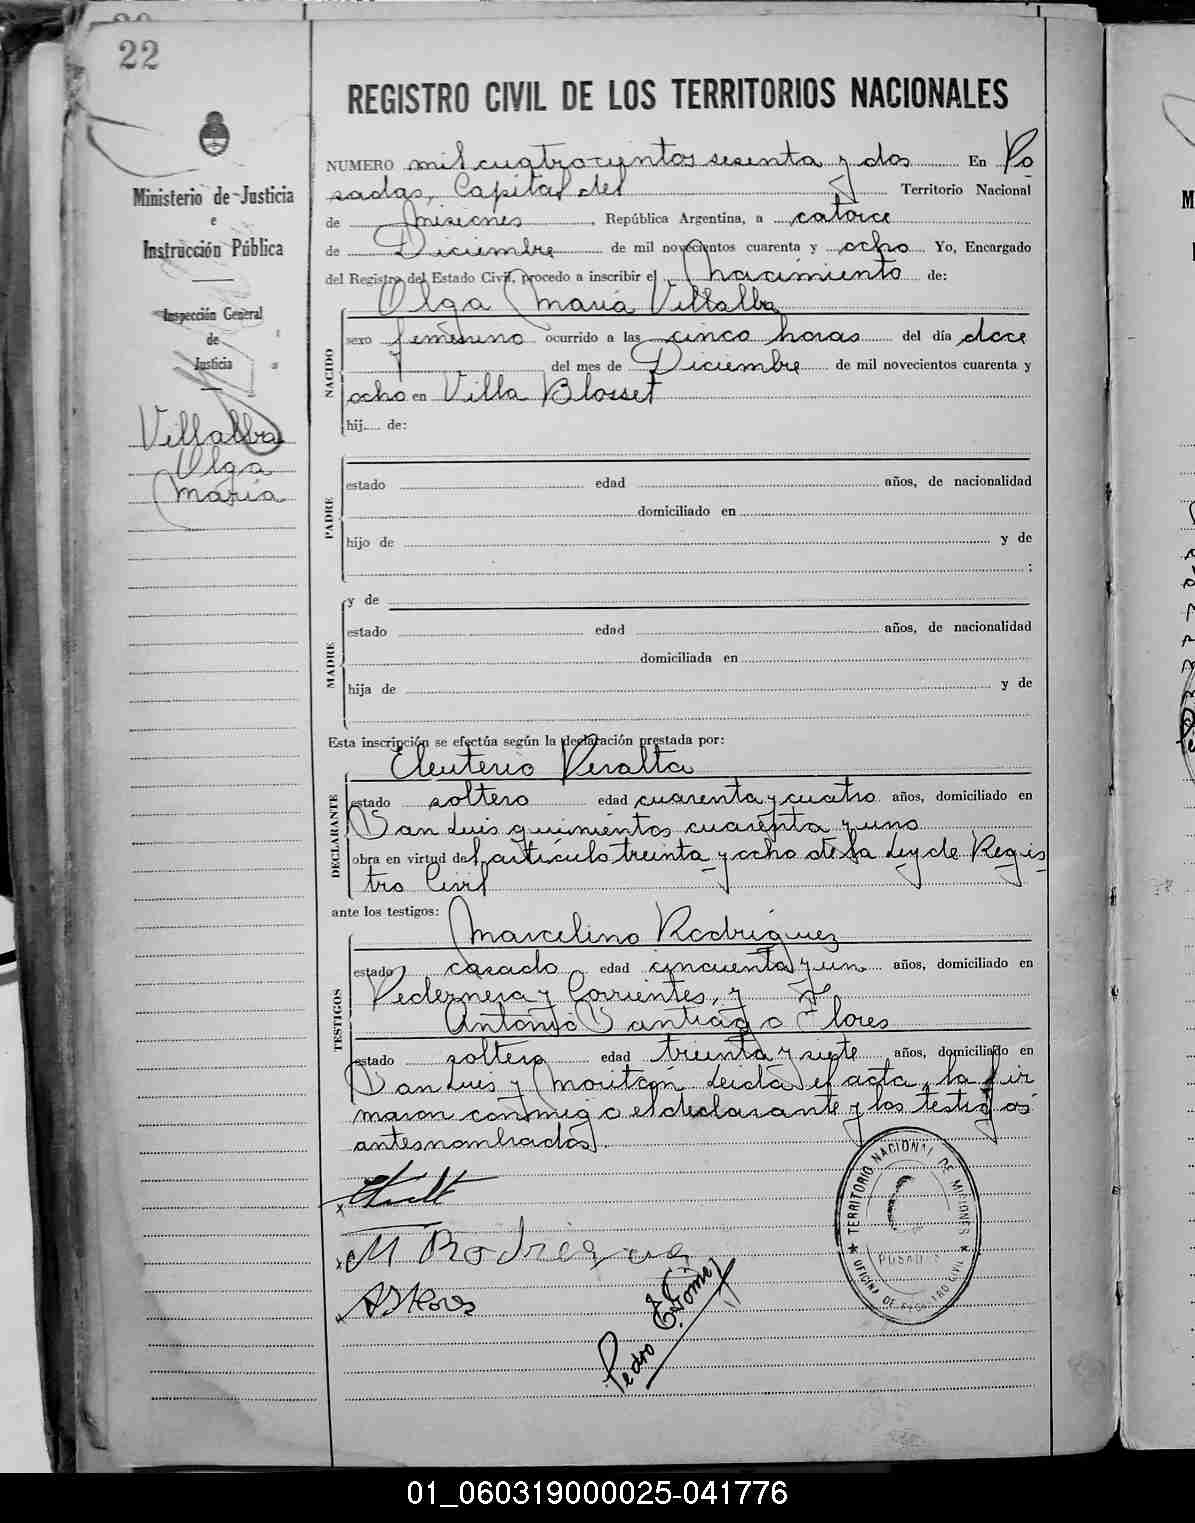 22
REGISTRO CIVIL DE LOS TERRITORIOS NACIONALES
Ministerio de Justicia
e
Instrucción Pública
Inspección General
de
Justicia
Villalba
Olga
María
NUMERO mil cuatrocientos sesenta y dos En Po
sadas, Capital del Territorio Nacional
de Misiones, República Argentina, a catorce
de Diciembre de mil novecientos cuarenta y ocho Yo, Encargado
del Registro del Estado Civil, procedo a inscribir el nacimiento de:
Olga María Villalba
NACIDO
sexo femenino ocurrido a las cinco horas del día doce
del mes de Diciembre de mil novecientos cuarenta y
ocho en Villa Blosset
hij.... de:
PADRE
estado edad años, de nacionalidad
domiciliado en
hijo de y de
:
MADRE
y de
estado edad años, de nacionalidad
domiciliada en
hija de y de
Esta inscripción se efectúa según la declaración prestada por:
Eleuterio Peralta
DECLARANTE
estado soltero edad cuarenta y cuatro años, domiciliado en
San Luis quinientos cuarenta y uno
obra en virtud del artículo treinta y ocho de la Ley de Regis
tro Civil
ante los testigos:
Marcelino Rodriguez
TESTIGOS
estado casado edad cincuenta y un años, domiciliado en
Pedernera y Corrientes, y
Antonio Santiago Flores
estado soltero edad treinta y siete años, domiciliado en
San Luis y Moritán Leida el acta, la fir
maron conmigo el declarante y los testigos
antesnombrados.
M Rodriguez
ASFlores
Pedro E. Gómez
TERRITORIO NACIONAL DE MISIONES
POSADAS
OFICINA DE REGISTRO CIVIL
01_060319000025-041776